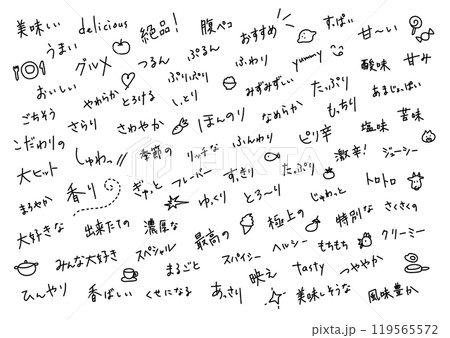 美味しい delicious 絶品! 腹ペコ おすすめ すっぱい 甘〜い
うまい グルメ つるん ぷるん ふわり yummy 酸味 甘み
おいしい やわらか とろける ぷりぷり しっとり みずみずしい たっぷり あまじょっぱい
ごちそう さらり さわやか ほんのり なめらか もっちり 塩味 苦味
こだわりの しゅわっ 季節の リッチな ふんわり ピリ辛 激辛! ジューシー
大ヒット 香り ぎゅっと フレーバー すっきり たっぷり トロトロ
まろやか ゆっくり とろ〜り じゅわっと さくさくの
大好きな 出来たての 濃厚な 最高の 極上の 特別な クリーミー
みんな大好き スペシャル まるごと スパイシー ヘルシー もちもち
ひんやり 香ばしい くせになる あっさり 映え tasty つややか
美味しそうな 風味豊か
PIXTA
119565572